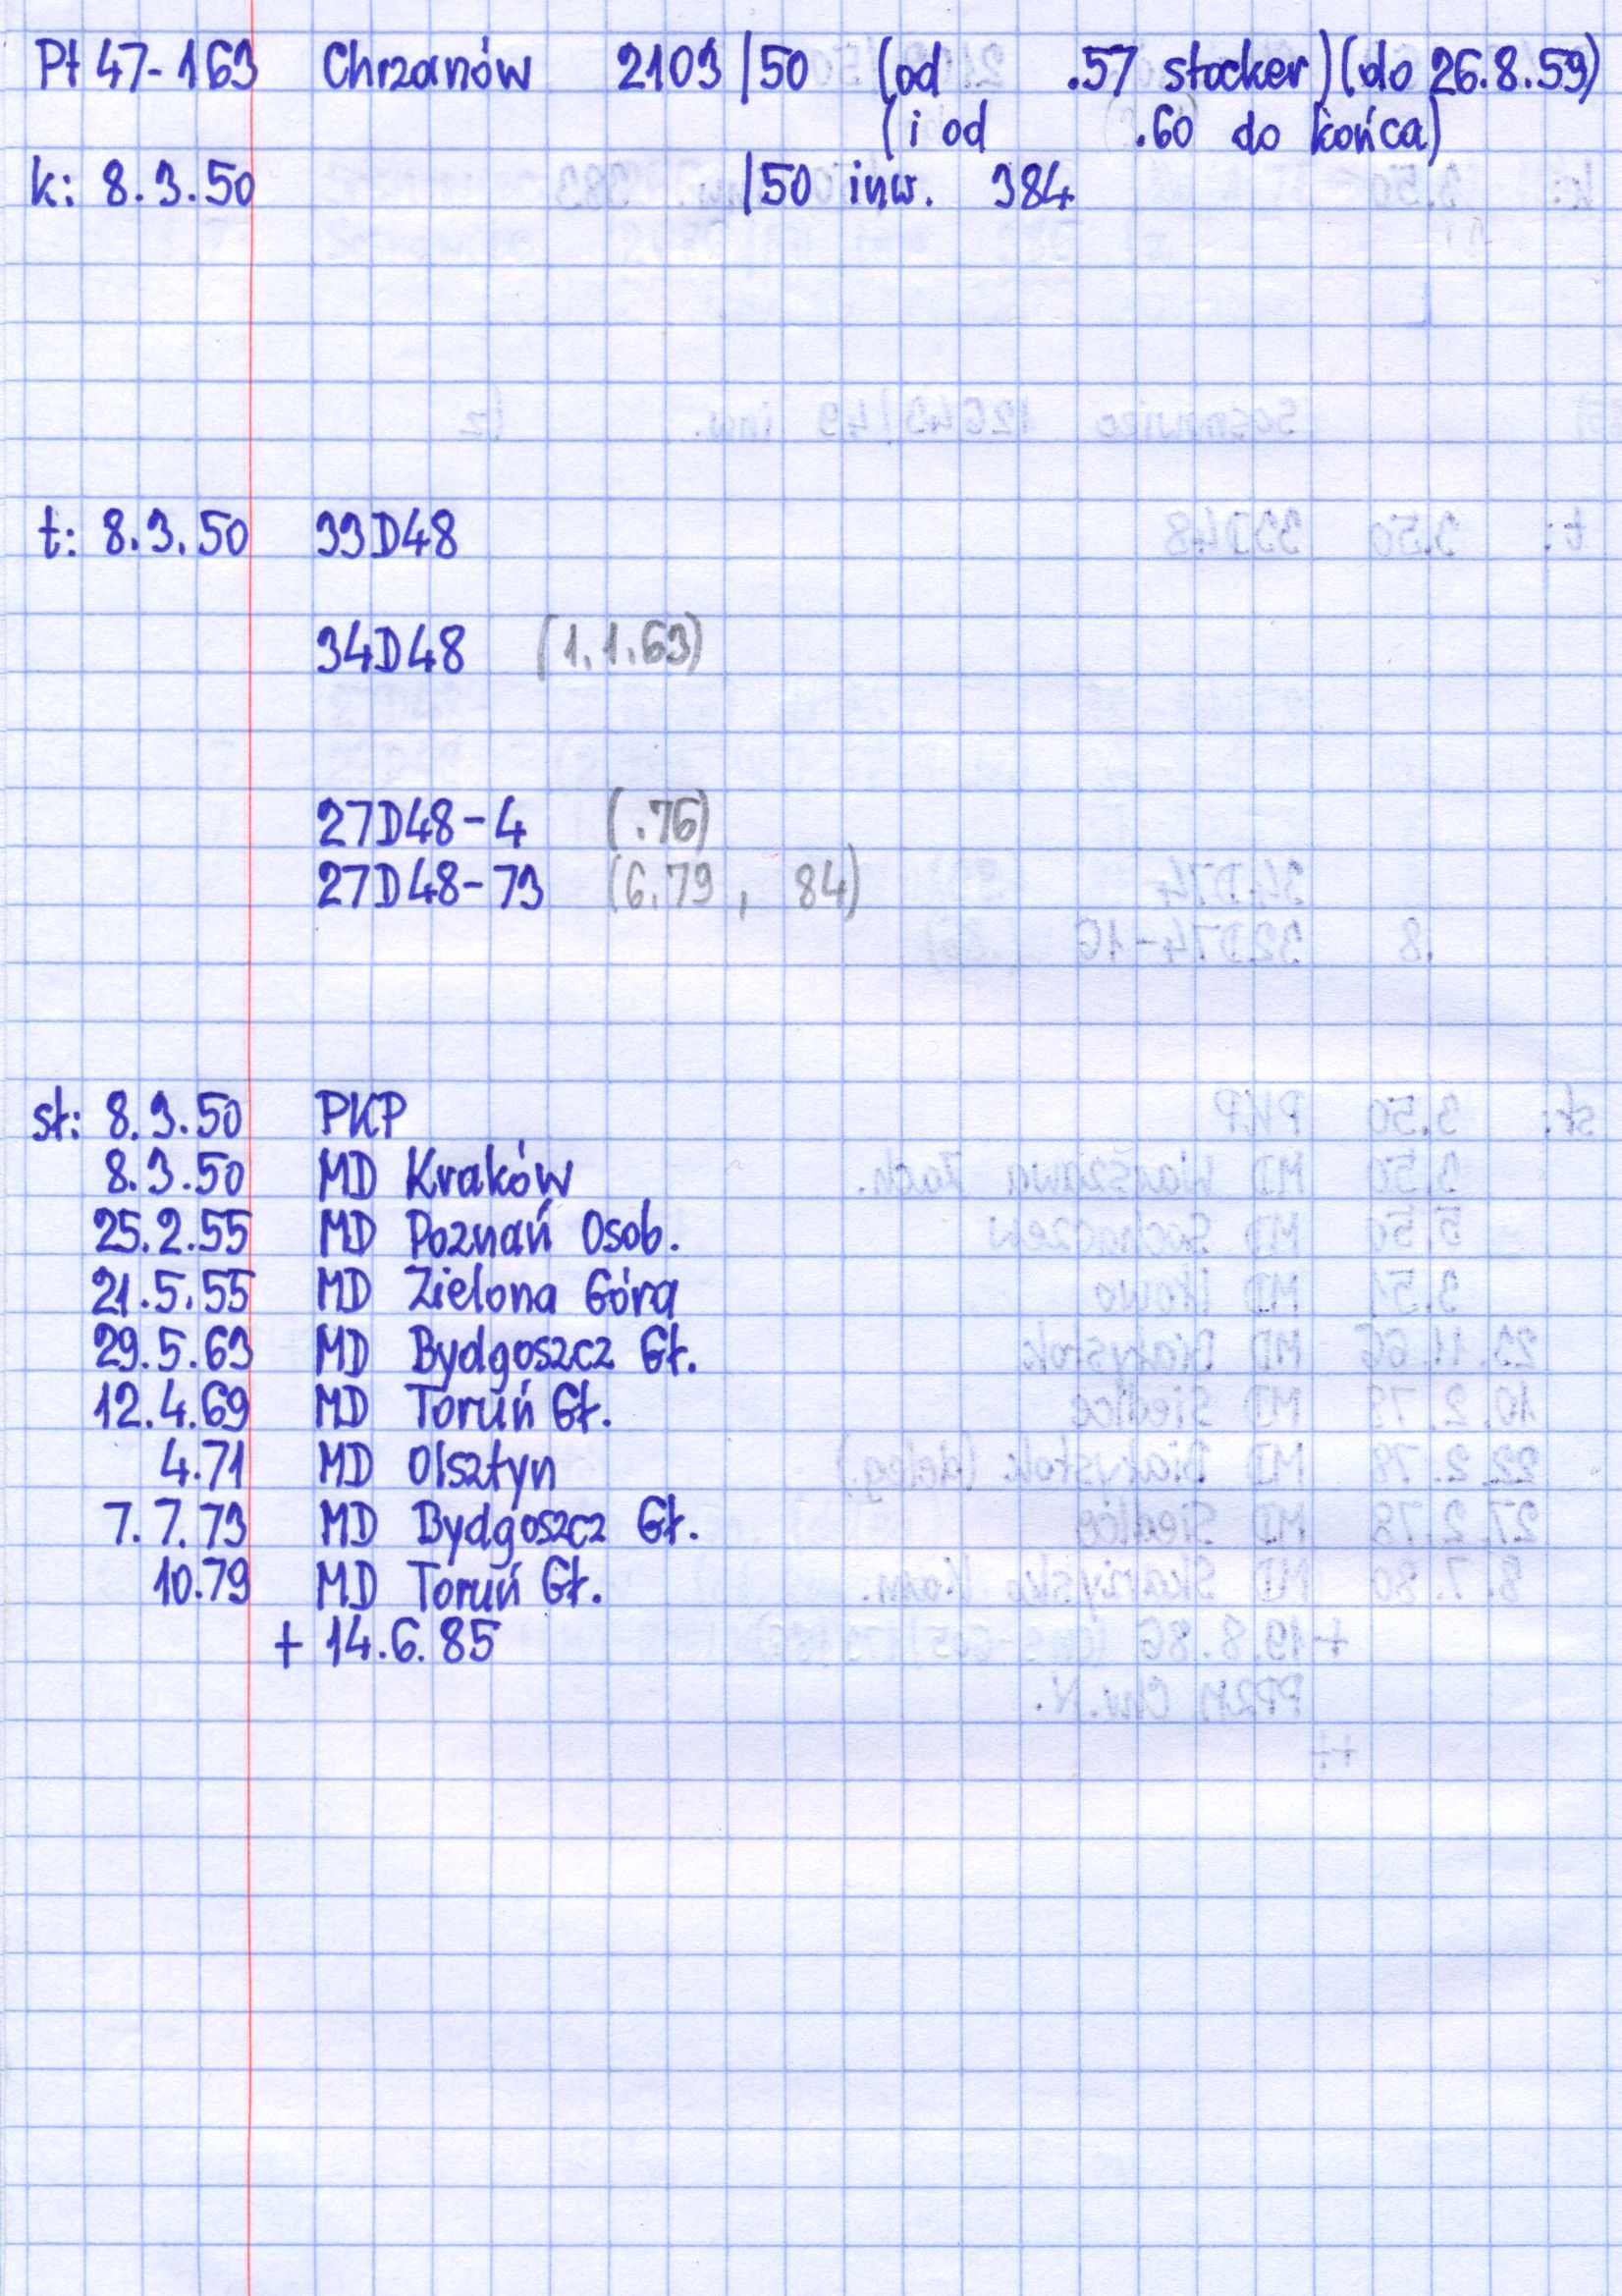 Pt 47-163 Chrzanów 2103/50 (od .57 stocker)(do 26.8.59)
(i od .60 do końca)
k: 8.3.50 /50 inw. 384
t: 8.3.50 33D48
34D48 (1.1.63)
27D48-4 (.76)
27D48-73 (6.79, 84)
st: 8.3.50 PKP
8.3.50 MD Kraków
25.2.55 MD Poznań Osob.
21.5.55 MD Zielona Góra
29.5.63 MD Bydgoszcz Gł.
12.4.69 MD Toruń Gł.
4.71 MD Olsztyn
7.7.73 MD Bydgoszcz Gł.
10.79 MD Toruń Gł.
+ 14.6.85